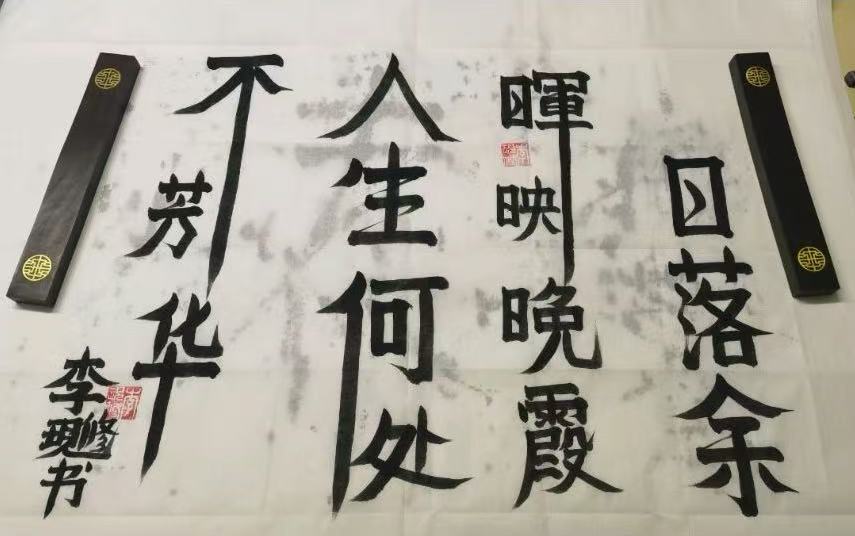 日落余
暉映晚霞
人生何处
不芳华
李现修书